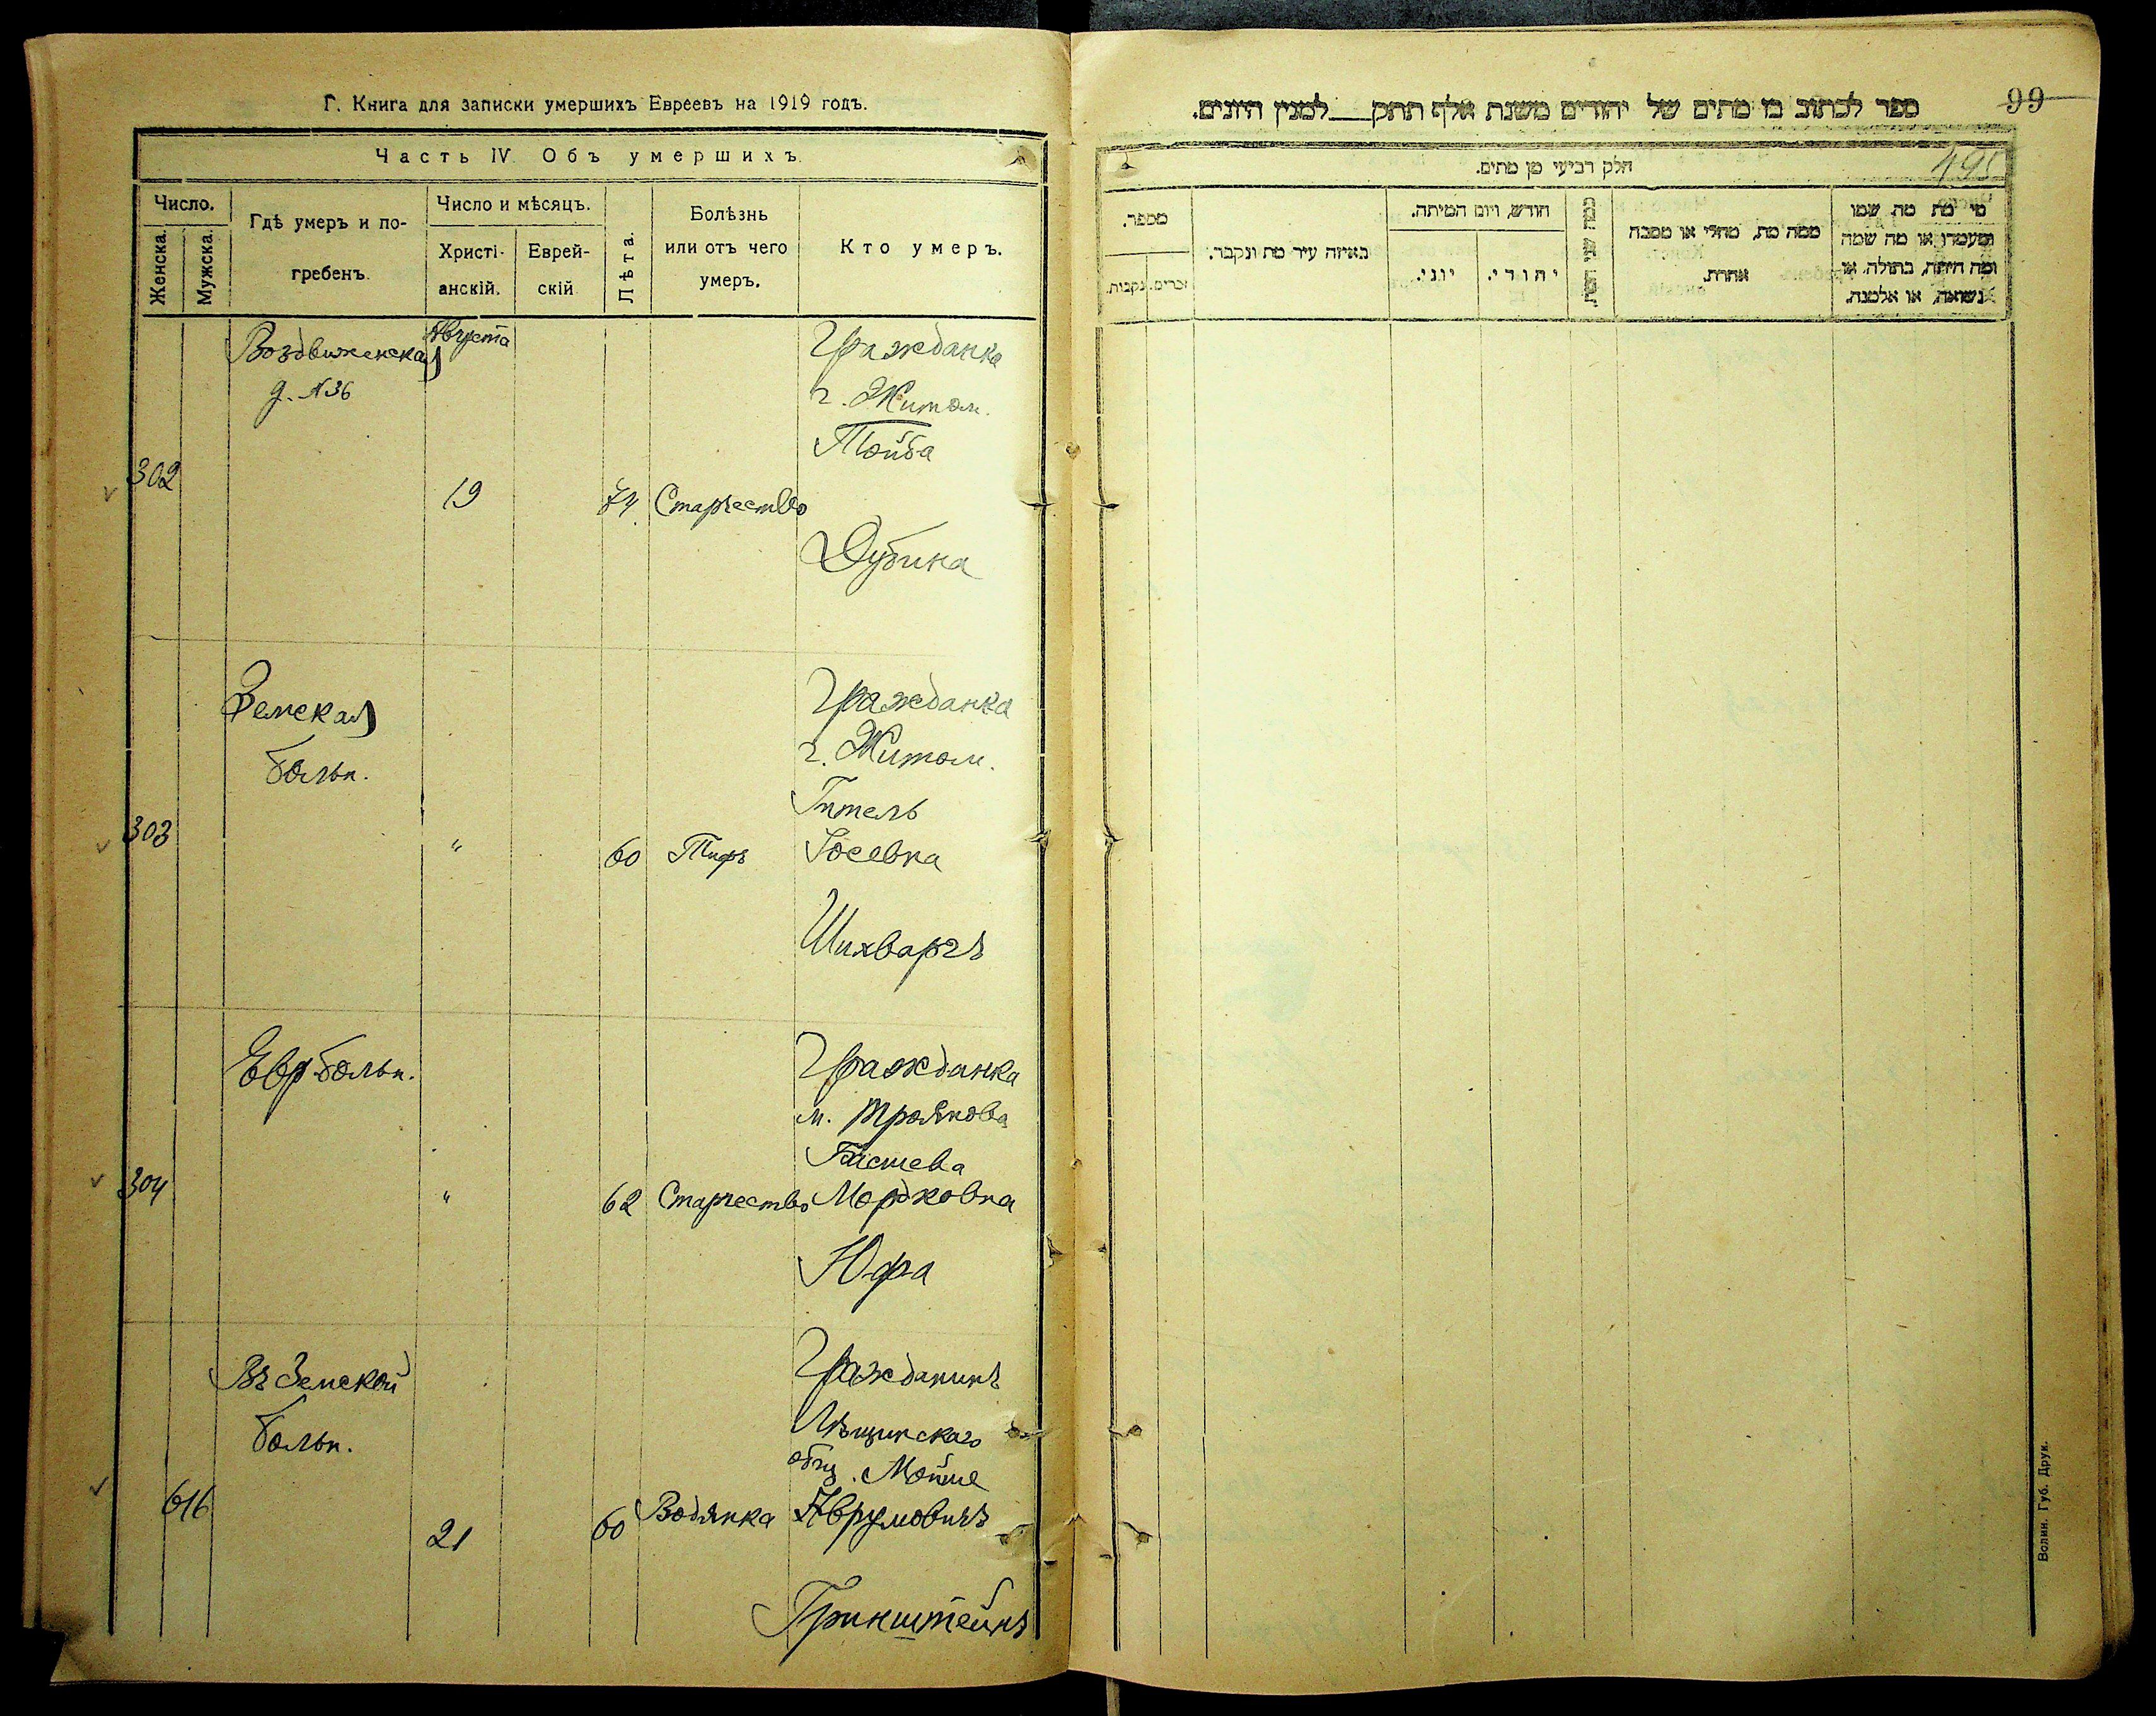 Г. Книга для записки умершихъ Евреевъ на 1919 годъ.
Часть IV. Объ умершихъ.
Число.
Женска.
Мужска.
Гдѣ умеръ и по-
гребенъ.
Число и мѣсяцъ.
Христі-
анскій.
Еврей-
скій
Лѣта.
Болѣзнь
или отъ чего
умеръ.
Кто умеръ.
302
Воздвиженская
д. №36
Августа
19
74
Старчество
Гражданка
г. Житом.
Тойба
Дубина
303
Земская
больн.
"
60
Тифъ
Гражданка
г. Житом.
Гитель
Іосевна
304
Евр. больн.
"
62
Старчество
Гражданка
м. Троянова
Басшева
Мордковна
Юфа
616
Въ Земской
больн.
21
60
Водянка
Гражданинъ
общ. Мойше
Аврумовичъ
Гринштейнъ
99
ספר לכתוב בו מתים של יהודים משנת אלף תתק___למנין היונים.
495
חלק רביעי מן מתים.
מי מת מה שמו
ומעמדו או מה שמה
ומה היתה, בתולה, או
נשואה, או אלמנה.
ממה מת, מחלי או מסבה
אחרת.
כמה שני חייו
חודש, ויום המיתה.
יהודי.
יוני.
באיזה עיר מת ונקבר.
מספר.
זכרים.
נקבות.
Волин. Губ. Друк.